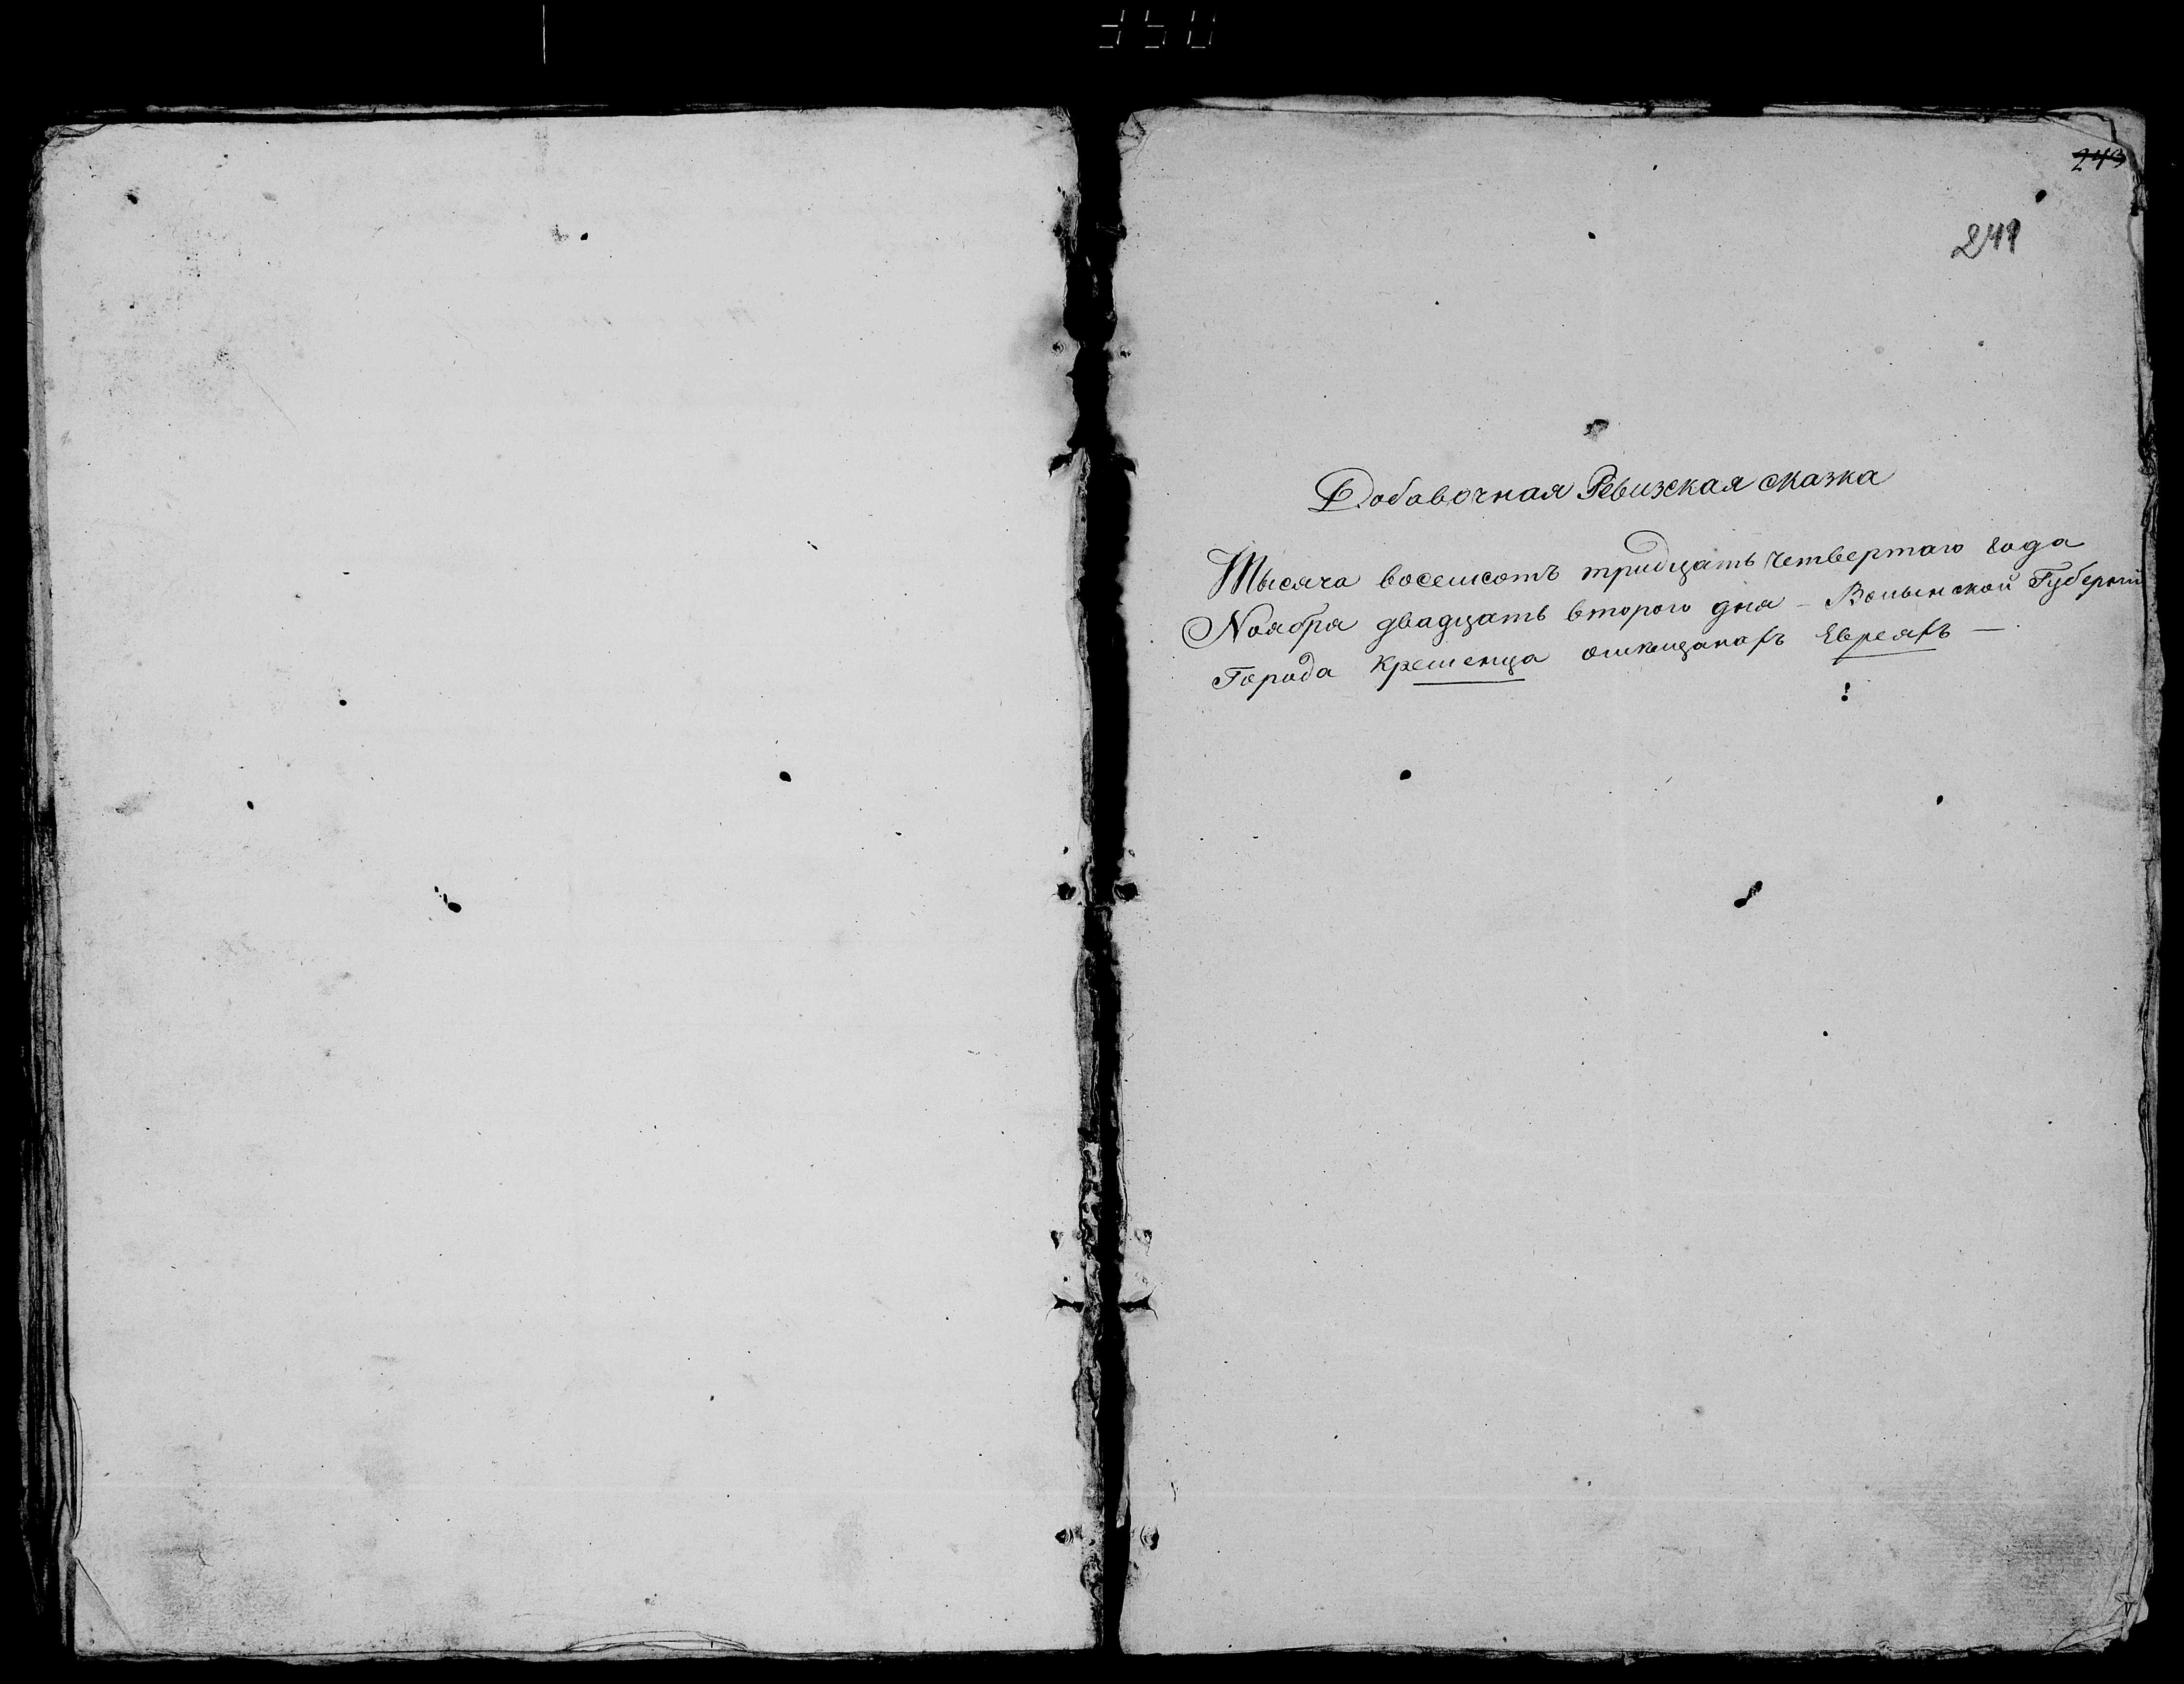 243
241
Добавочная Ревизская сказка
Тысяча восемсотъ тридцать четвертаго года
Ноября двадцать второго дня - Волынской Губерній
Города Кременца омѣщанахъ Евреяхъ —